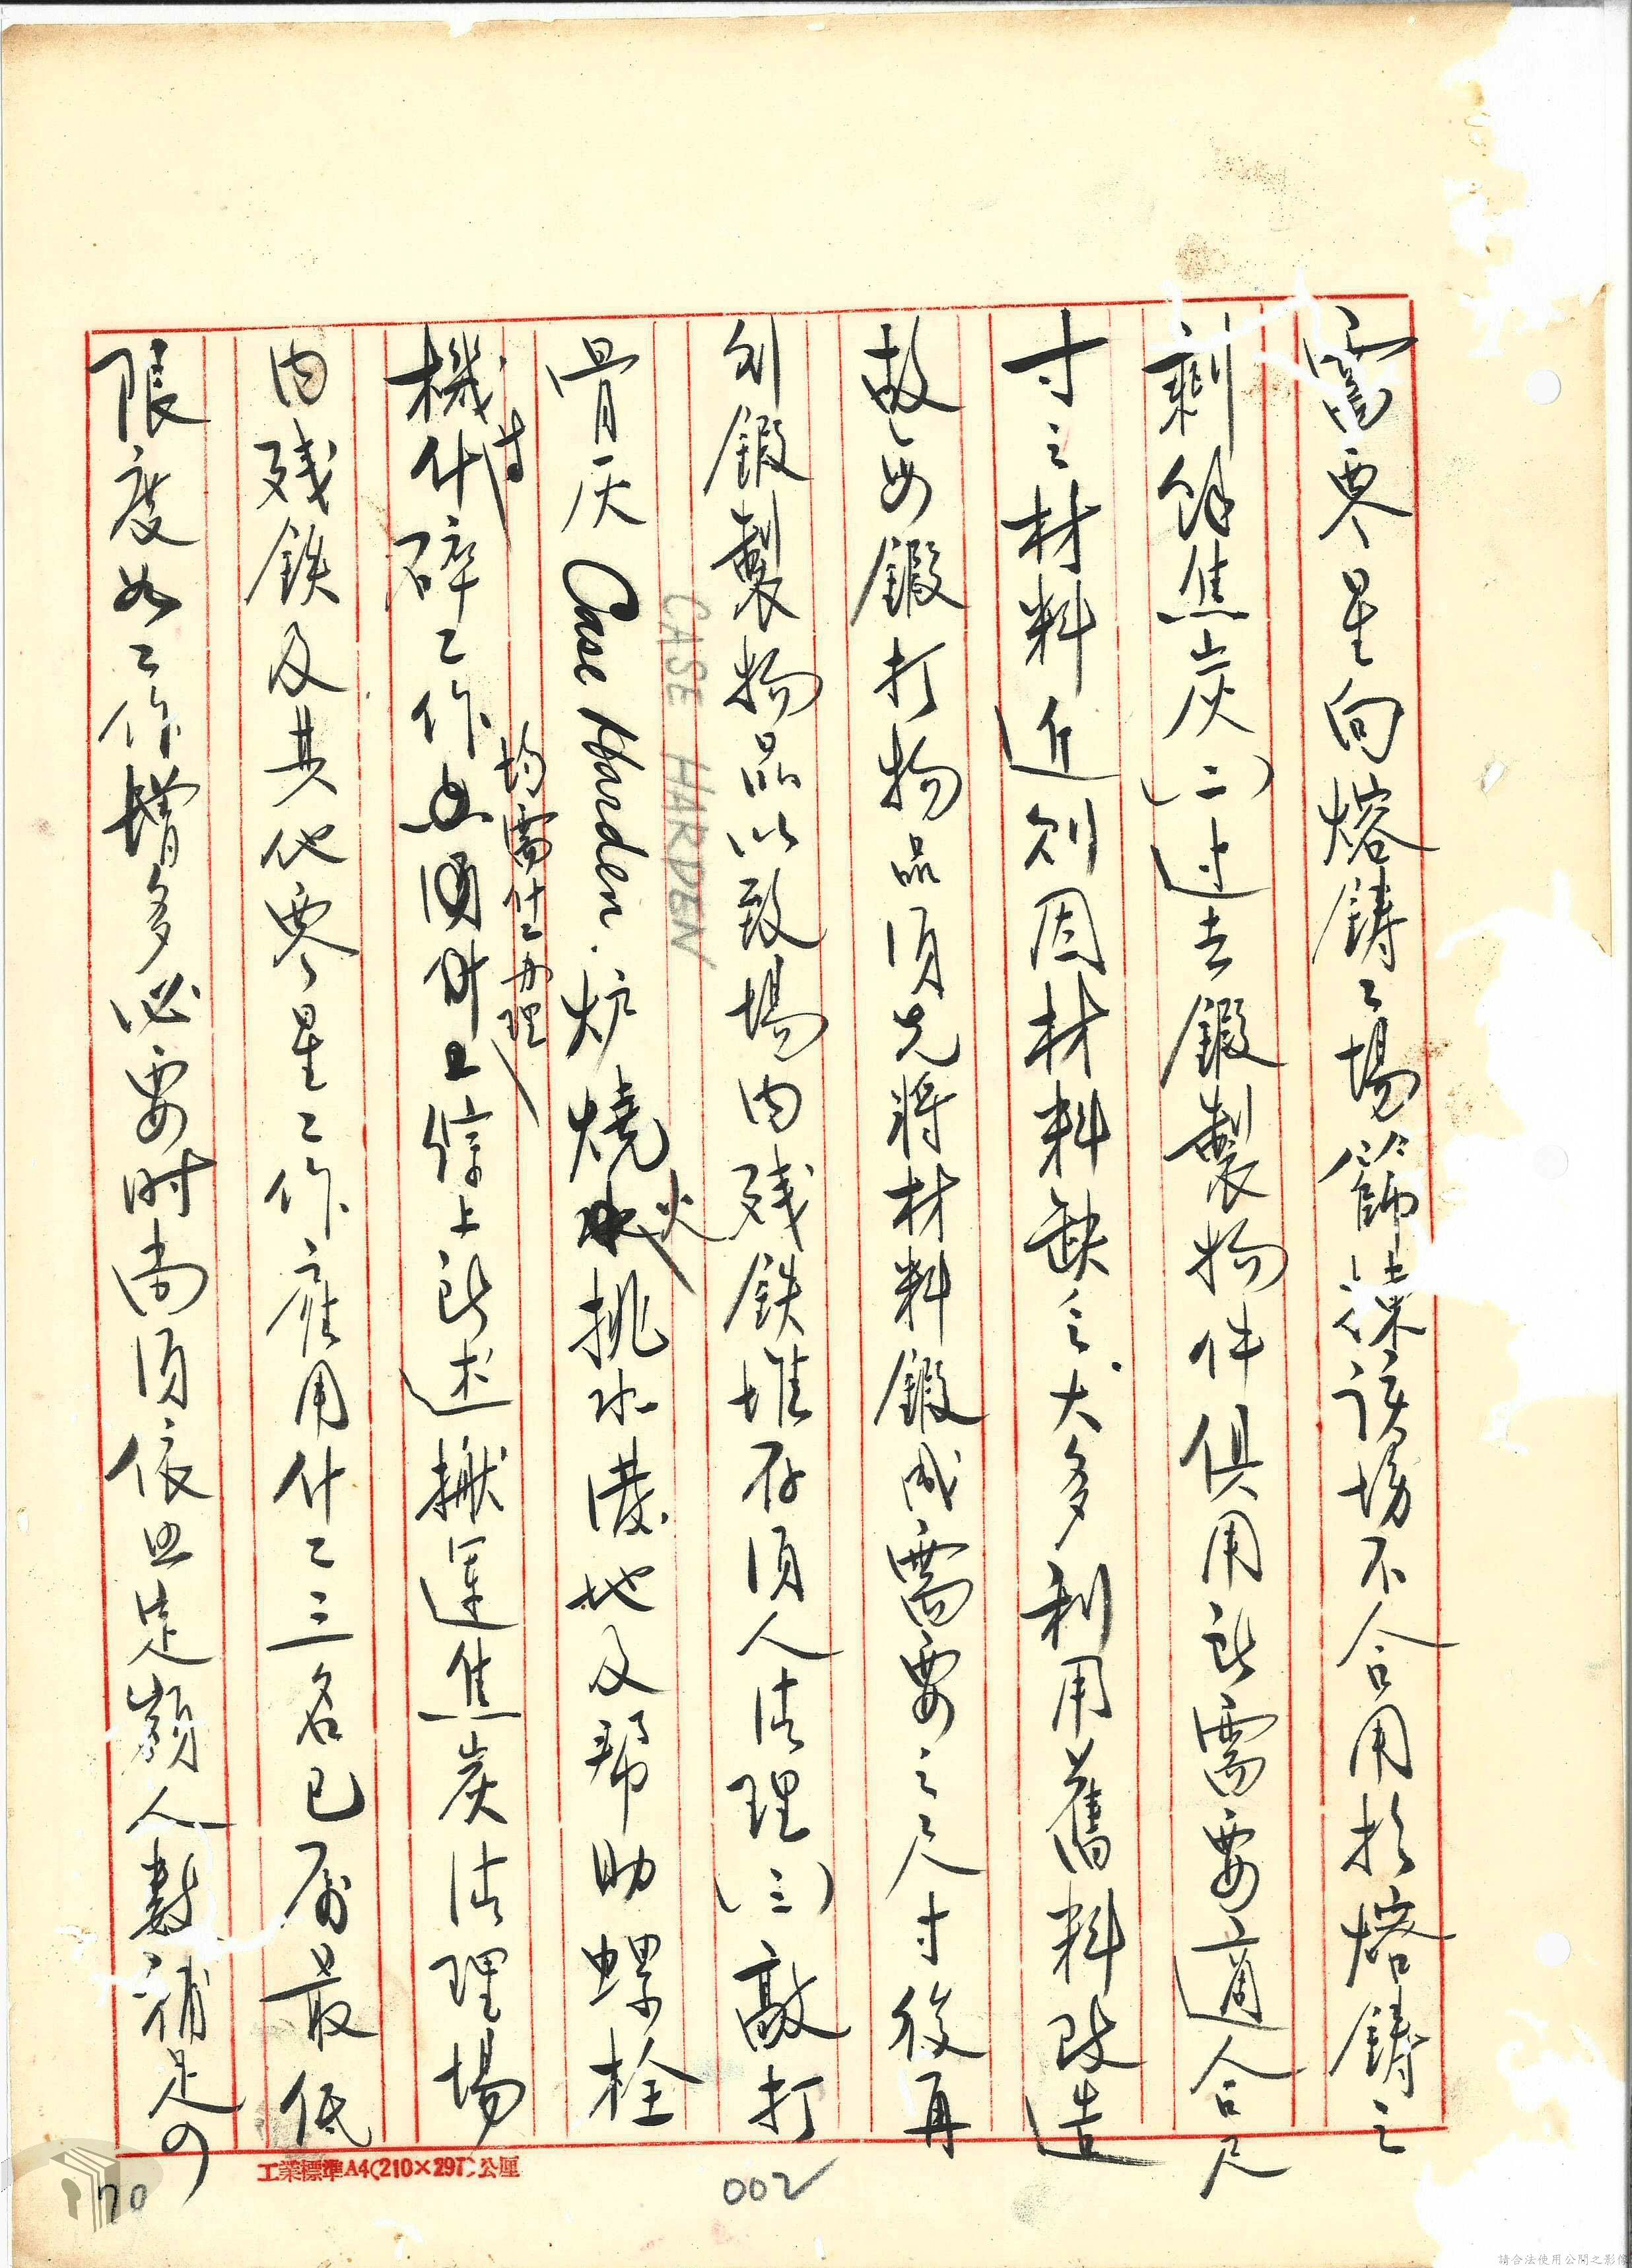 需零星向熔鑄工場篩揀該場不合用於熔鑄之
剩餘焦炭(二)過去鍛製物件俱用所需要適合尺
寸之材料近則因材料缺乏大多利用舊料改造
故每鍛打物品須先將材料鍛成需要之尺寸後再
別鍛製物品以致場內殘鉄堆存須人清理(三)敲打
CASE HARDEN
骨灰 Case Harden 炉燒火挑水潑地及幫助螺栓
機什碎工作均需什工办理綜上所述搬運焦炭清理場
內殘鉄及其他零星工作雇用什工三名已屬最低
限度如工作增多必要時尚須依照定額人數補足
工業標準A4(210×297)公厘
002
70
請合法使用公開之影像